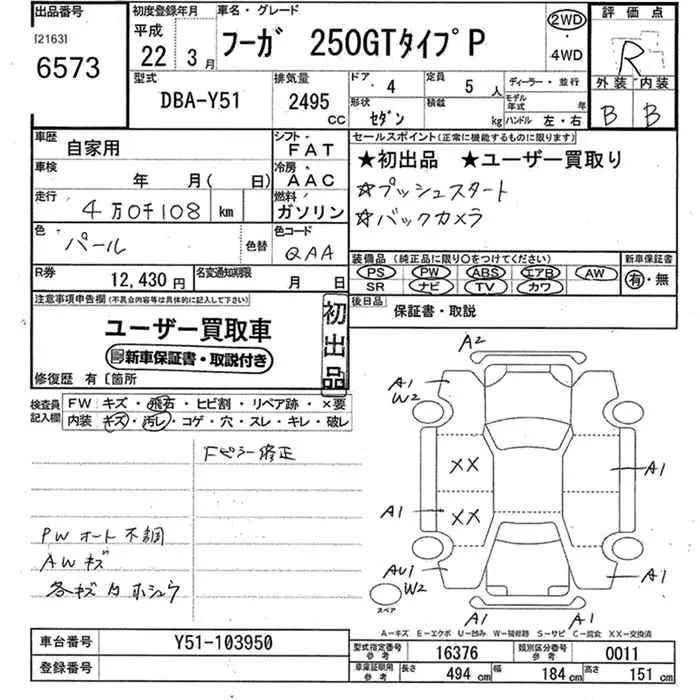 出品番号 初度登録年月 車名・グレード 評価点
[2163] 平成
6573 22 3月 フーガ 250GTタイプP 2WD R
4WD
型式 排気量 ドア 4 定員 5人 ディーラー・並行 外装 内装
DBA-Y51 2495 CC 形状 セダン 積載 kg モデル年式 年 ハンドル 左・右 B B
車歴 自家用 シフト FAT セールスポイント(正常に機能するものに限ります)
車検 年 月( 日) 冷房 AAC ★初出品 ★ユーザー買取り
走行 4万0千108 km 燃料 ガソリン ☆プッシュスタート
色 パール 色替 色コード QAA ☆バックカメラ
R券 12,430円 名変通知期限 月 日
装備品(純正品に限り○をつけてください) 新車保証書
PS PW ABS エアB AW 有・無
SR ナビ TV カワ
注意事項申告欄(不具合内容等は具体的に記入して下さい) 初出品 後日品 保証書・取説
ユーザー買取車
新車保証書・取説付き
修復歴 有〔箇所
検査員記入欄 FW キズ・飛石・ヒビ割・リペア跡・×要
内装 キズ・汚レ・コゲ・穴・スレ・キレ・破レ
Fピラー修正
PWオート不調
AWキズ
各キズ内ホシュウ
A2
A1
W2
XX
A1
A1 XX
AU1
W2
A1
スペア
A1 A1
A-キズ E-エクボ U-凹み W-補修跡 S-サビ C-腐食 XX-交換済
車台番号 Y51-103950
登録番号
型式指定番号 参考 16376 類別区分番号 参考 0011
車庫証明用 参考 長さ 494 cm 幅 184 cm 高さ 151 cm